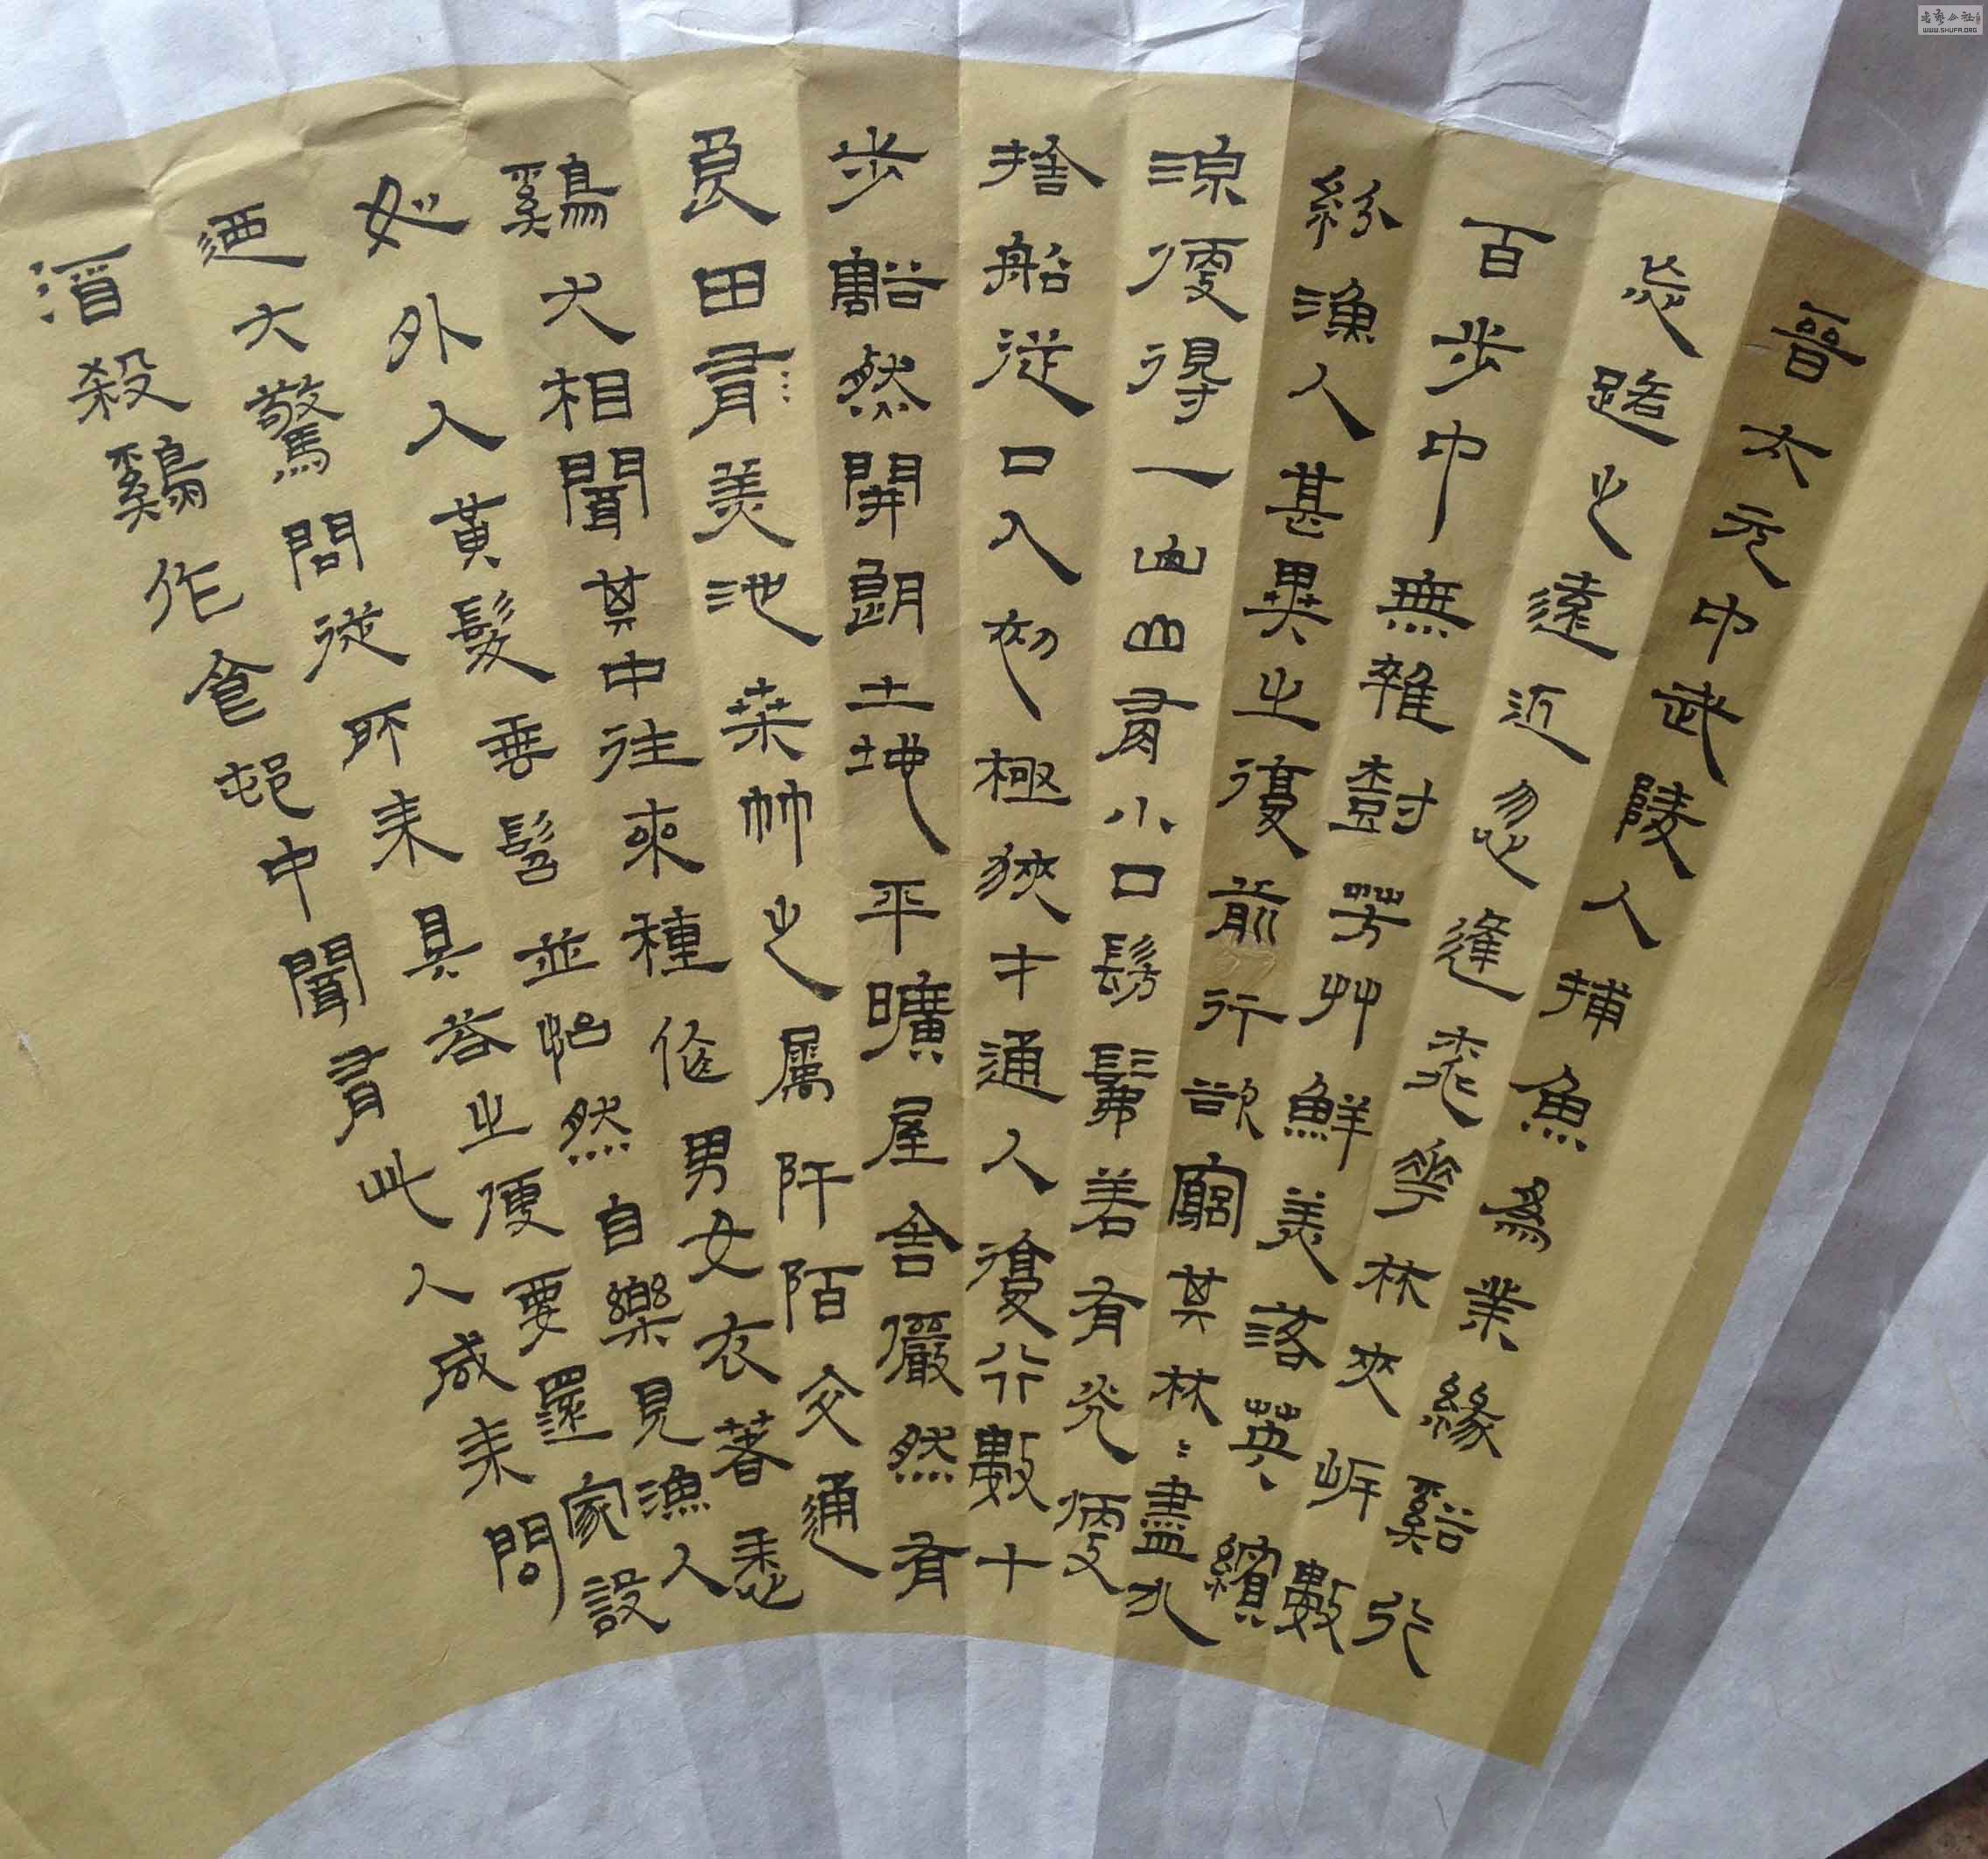 晉太元中武陵人捕魚為業緣谿行
忘路之遠近忽逢桃華林夾岸數
百步中無雜樹芳艸鮮美落英繽
紛漁人甚異之復前行欲窮其林〻盡水
源便得一山山有小口髣髴若有光便
捨船從口入初極狹才通人復行數十
步豁然開朗土地平曠屋舍儼然有
良田有美池桑竹之屬阡陌交通
鷄犬相聞其中往來種作男女衣著悉
如外人黃髮垂髫並怡然自樂見漁人
迺大驚問從所來具答之便要還家設
酒殺鷄作食邨中聞有此人咸來問
书艺公社
WWW.SHUFA.ORG